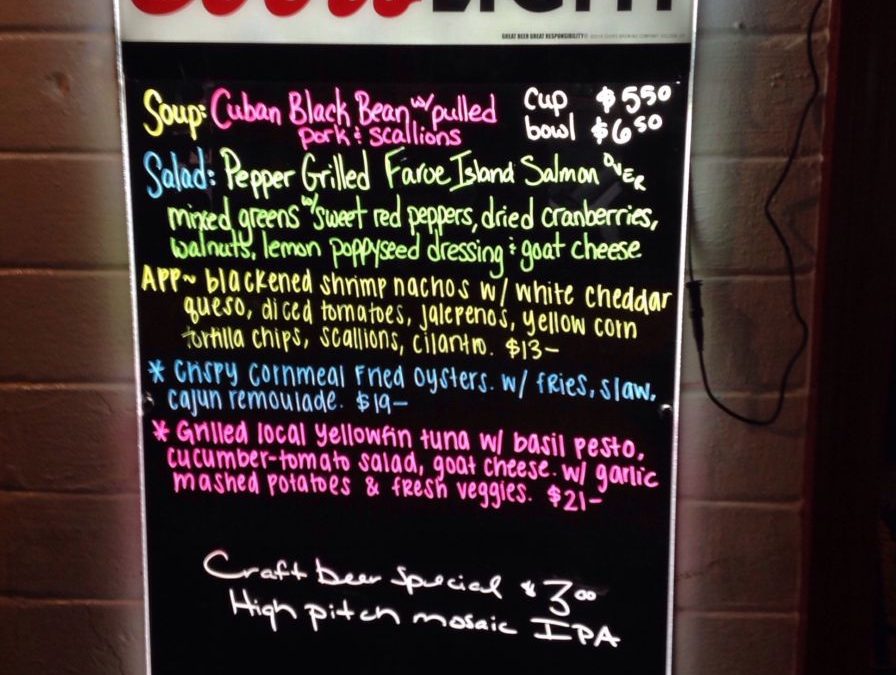 Coors LIGHT
GREAT BEER GREAT RESPONSIBILITY®
Soup: Cuban Black Bean w/ pulled
pork & scallions
cup $5.50
bowl $6.50
Salad: Pepper Grilled Faroe Island Salmon OVER
mixed greens w/ sweet red peppers, dried cranberries,
walnuts, lemon poppyseed dressing & goat cheese
APP~ blackened shrimp nachos w/ white cheddar
queso, diced tomatoes, jalepenos, yellow corn
tortilla chips, scallions, cilantro. $13-
* Crispy Cornmeal Fried Oysters. w/ fries, slaw,
cajun remoulade. $19-
* Grilled local yellowfin tuna w/ basil pesto,
cucumber-tomato salad, goat cheese. w/ garlic
mashed potatoes & fresh veggies. $21-
Craft beer Special $3.00
High pitch mosaic IPA